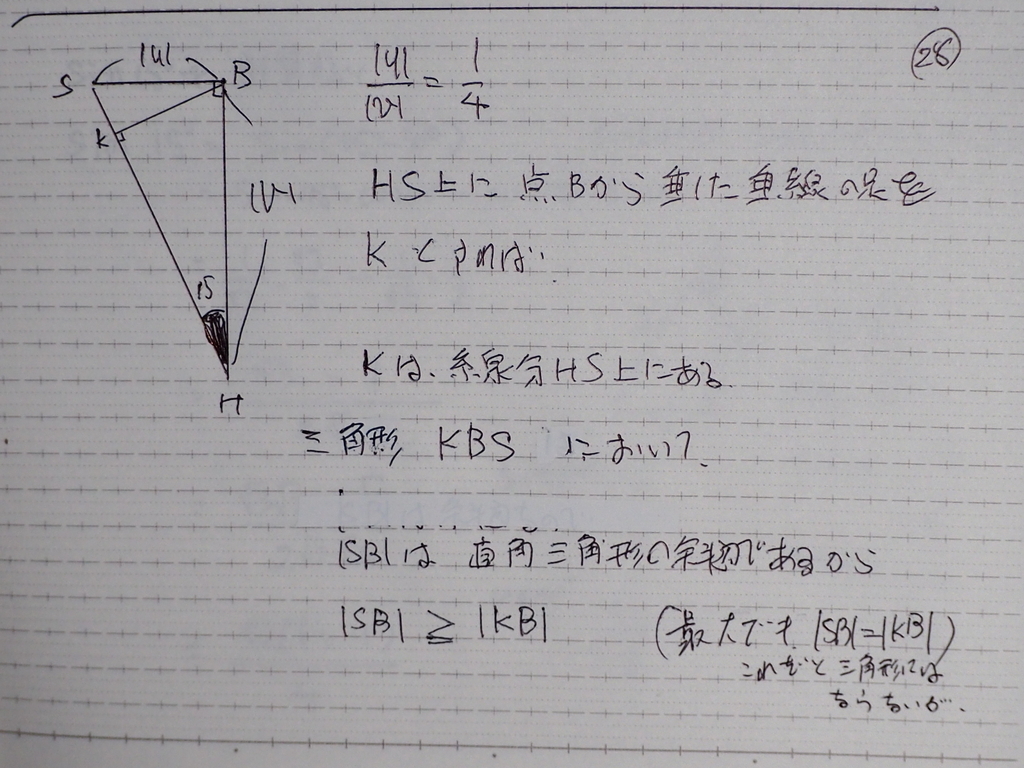 28
|u|
S
B
K
|v|
15
H
|u|/|v| = 1/4
HS上に 点Bから 垂した 垂線の足を
K とすれば
Kは、線分HS上にある.
三角形 KBS において、
|SB|は 直角三角形の斜辺であるから
|SB| ≧ |KB|
(最大でも |SB|=|KB|)
これだと三角形には
ならないが.